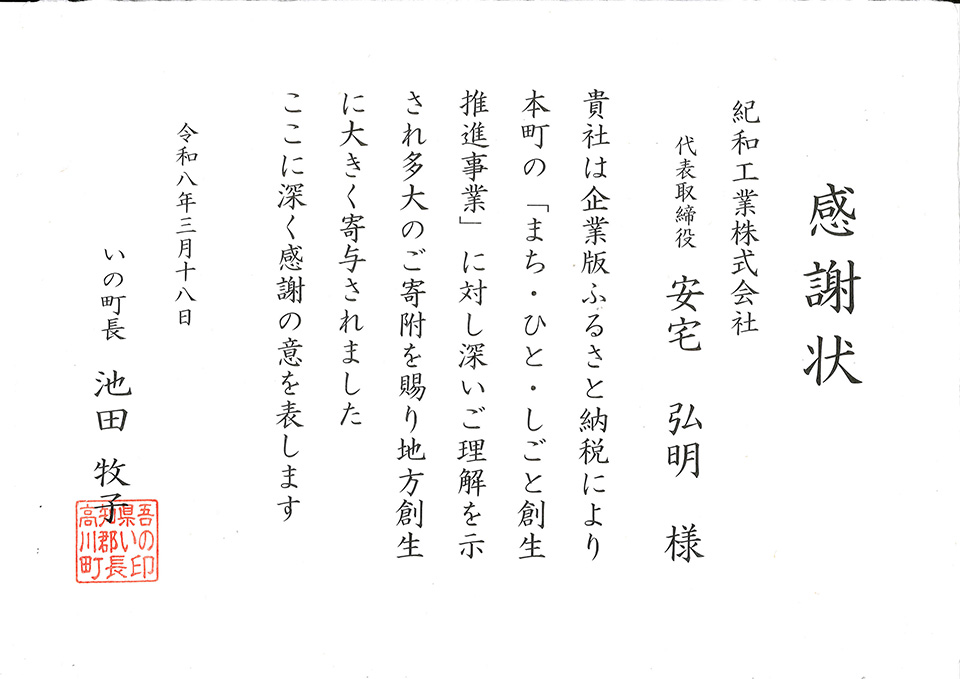 感謝状
紀和工業株式会社
代表取締役 安宅 弘明 様
貴社は企業版ふるさと納税により
本町の「まち・ひと・しごと創生
推進事業」に対し深いご理解を示
され多大のご寄附を賜り地方創生
に大きく寄与されました
ここに深く感謝の意を表します
令和八年三月十八日
いの町長 池田 牧子
吾の印
県い長
知郡
高川町